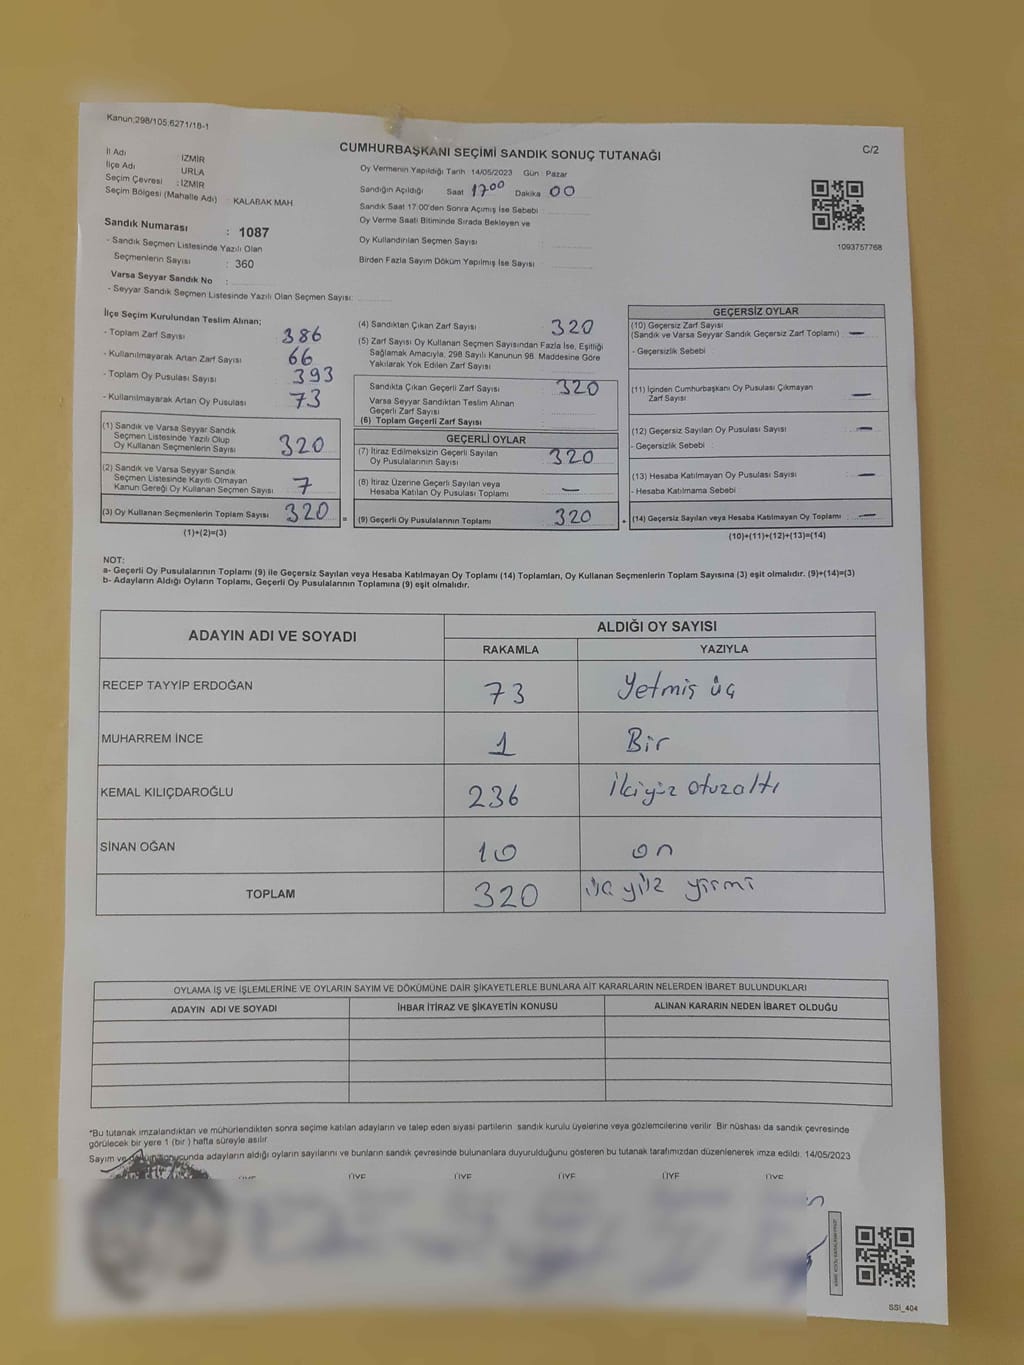 Kanun;298/105;6271/18-1
CUMHURBAŞKANI SEÇİMİ SANDIK SONUÇ TUTANAĞI
C/2
İl Adı İZMİR
İlçe Adı URLA
Seçim Çevresi : İZMİR
Seçim Bölgesi (Mahalle Adı) : KALABAK MAH
Oy Vermenin Yapıldığı Tarih 14/05/2023 Gün : Pazar
Sandığın Açıldığı Saat 17:00 Dakika 00
Sandık Saat 17:00'den Sonra Açılmış İse Sebebi :
Oy Verme Saati Bitiminde Sırada Bekleyen ve
Oy Kullandırılan Seçmen Sayısı :
Birden Fazla Sayım Döküm Yapılmış İse Sayısı :
1093757768
Sandık Numarası : 1087
- Sandık Seçmen Listesinde Yazılı Olan
Seçmenlerin Sayısı : 360
Varsa Seyyar Sandık No :
- Seyyar Sandık Seçmen Listesinde Yazılı Olan Seçmen Sayısı:
İlçe Seçim Kurulundan Teslim Alınan;
- Toplam Zarf Sayısı 386
- Kullanılmayarak Artan Zarf Sayısı 66
- Toplam Oy Pusulası Sayısı 393
- Kullanılmayarak Artan Oy Pusulası 73
(1) Sandık ve Varsa Seyyar Sandık
Seçmen Listesinde Yazılı Olup
Oy Kullanan Seçmenlerin Sayısı 320
(2) Sandık ve Varsa Seyyar Sandık
Seçmen Listesinde Kayıtlı Olmayan
Kanun Gereği Oy Kullanan Seçmen Sayısı 7
(3) Oy Kullanan Seçmenlerin Toplam Sayısı 320 =
(1)+(2)=(3)
(4) Sandıktan Çıkan Zarf Sayısı : 320
(5) Zarf Sayısı Oy Kullanan Seçmen Sayısından Fazla İse, Eşitliği
Sağlamak Amacıyla, 298 Sayılı Kanunun 98. Maddesine Göre
Yakılarak Yok Edilen Zarf Sayısı :
Sandıkta Çıkan Geçerli Zarf Sayısı 320
Varsa Seyyar Sandıktan Teslim Alınan
Geçerli Zarf Sayısı :
(6) Toplam Geçerli Zarf Sayısı :
GEÇERLİ OYLAR
(7) İtiraz Edilmeksizin Geçerli Sayılan
Oy Pusulalarının Sayısı 320
(8) İtiraz Üzerine Geçerli Sayılan veya
Hesaba Katılan Oy Pusulası Toplamı —
(9) Geçerli Oy Pusulalarının Toplamı 320 +
GEÇERSİZ OYLAR
(10) Geçersiz Zarf Sayısı
(Sandık ve Varsa Seyyar Sandık Geçersiz Zarf Toplamı) —
- Geçersizlik Sebebi
(11) İçinden Cumhurbaşkanı Oy Pusulası Çıkmayan
Zarf Sayısı —
(12) Geçersiz Sayılan Oy Pusulası Sayısı —
- Geçersizlik Sebebi
(13) Hesaba Katılmayan Oy Pusulası Sayısı —
- Hesaba Katılmama Sebebi
(14) Geçersiz Sayılan veya Hesaba Katılmayan Oy Toplamı —
(10)+(11)+(12)+(13)=(14)
NOT:
a- Geçerli Oy Pusulalarının Toplamı (9) ile Geçersiz Sayılan veya Hesaba Katılmayan Oy Toplamı (14) Toplamları, Oy Kullanan Seçmenlerin Toplam Sayısına (3) eşit olmalıdır. (9)+(14)=(3)
b- Adayların Aldığı Oyların Toplamı, Geçerli Oy Pusulalarının Toplamına (9) eşit olmalıdır.
ADAYIN ADI VE SOYADI ALDIĞI OY SAYISI
RAKAMLA YAZIYLA
RECEP TAYYİP ERDOĞAN 73 Yetmiş üç
MUHARREM İNCE 1 Bir
KEMAL KILIÇDAROĞLU 236 İkiyüz otuzaltı
SİNAN OĞAN 10 on
TOPLAM 320 üç yüz yirmi
OYLAMA İŞ VE İŞLEMLERİNE VE OYLARIN SAYIM VE DÖKÜMÜNE DAİR ŞİKAYETLERLE BUNLARA AİT KARARLARIN NELERDEN İBARET BULUNDUKLARI
ADAYIN ADI VE SOYADI İHBAR İTİRAZ VE ŞİKAYETİN KONUSU ALINAN KARARIN NEDEN İBARET OLDUĞU
*Bu tutanak imzalandıktan ve mühürlendikten sonra seçime katılan adayların ve talep eden siyasi partilerin sandık kurulu üyelerine veya gözlemcilerine verilir. Bir nüshası da sandık çevresinde
görülecek bir yere 1 (bir ) hafta süreyle asılır
Sayım ve döküm sonucunda adayların aldığı oyların sayılarını ve bunların sandık çevresinde bulunanlara duyurulduğunu gösteren bu tutanak tarafımızdan düzenlenerek imza edildi. 14/05/2023
ÜYE ÜYE ÜYE ÜYE ÜYE ÜYE
SSI_404